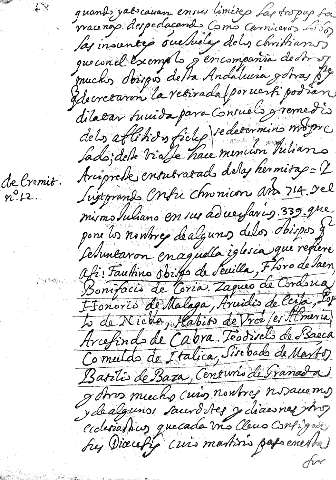 quando ya tocavan en sus limites las tropas sa
rracenas despedaçando como carniceros lobos
las inocentes ovejuelas de los christianos
que con el exemplo y en compañia de otros
muchos obispos desta Andalucia y otras
decretaron la retirada por ver si podian
dilatar su vida para consuelo y remedio
de los aflitidos fieles se determino nro pre
lado; deste viaje hace mencion Juliano
Arcipreste en su tratado de las hermitas
de Eremit.
nº 12.
Luitprando en su chronicon año 714. y el
mismo Juliano en sus adversarios. 339. que
pone los nombres de algunos de los obispos q
se juntaron en aquella iglesia que refiere
asi: Faustino obispo de Sevilla, Floro de Jaen
Bonifacio de Coria. Zaqueo de Cordova
Honorio de Malaga, Arvidio de Ecija,
to de Niebla, Habito de Vrci (es Almeria)
Arcesindo de Cabra. Teodiselo de Baeca
Comuldo de Italica, Sisebado de Martos
Basilio de Baza, Centurio de Granada
y otros muchos cuios nombres no savemos
y de algunos sacerdotes y diaconos y otros
eclesiasticos que cada uno llevo consigo de
sus Diocesis cuio martirio paso en esta